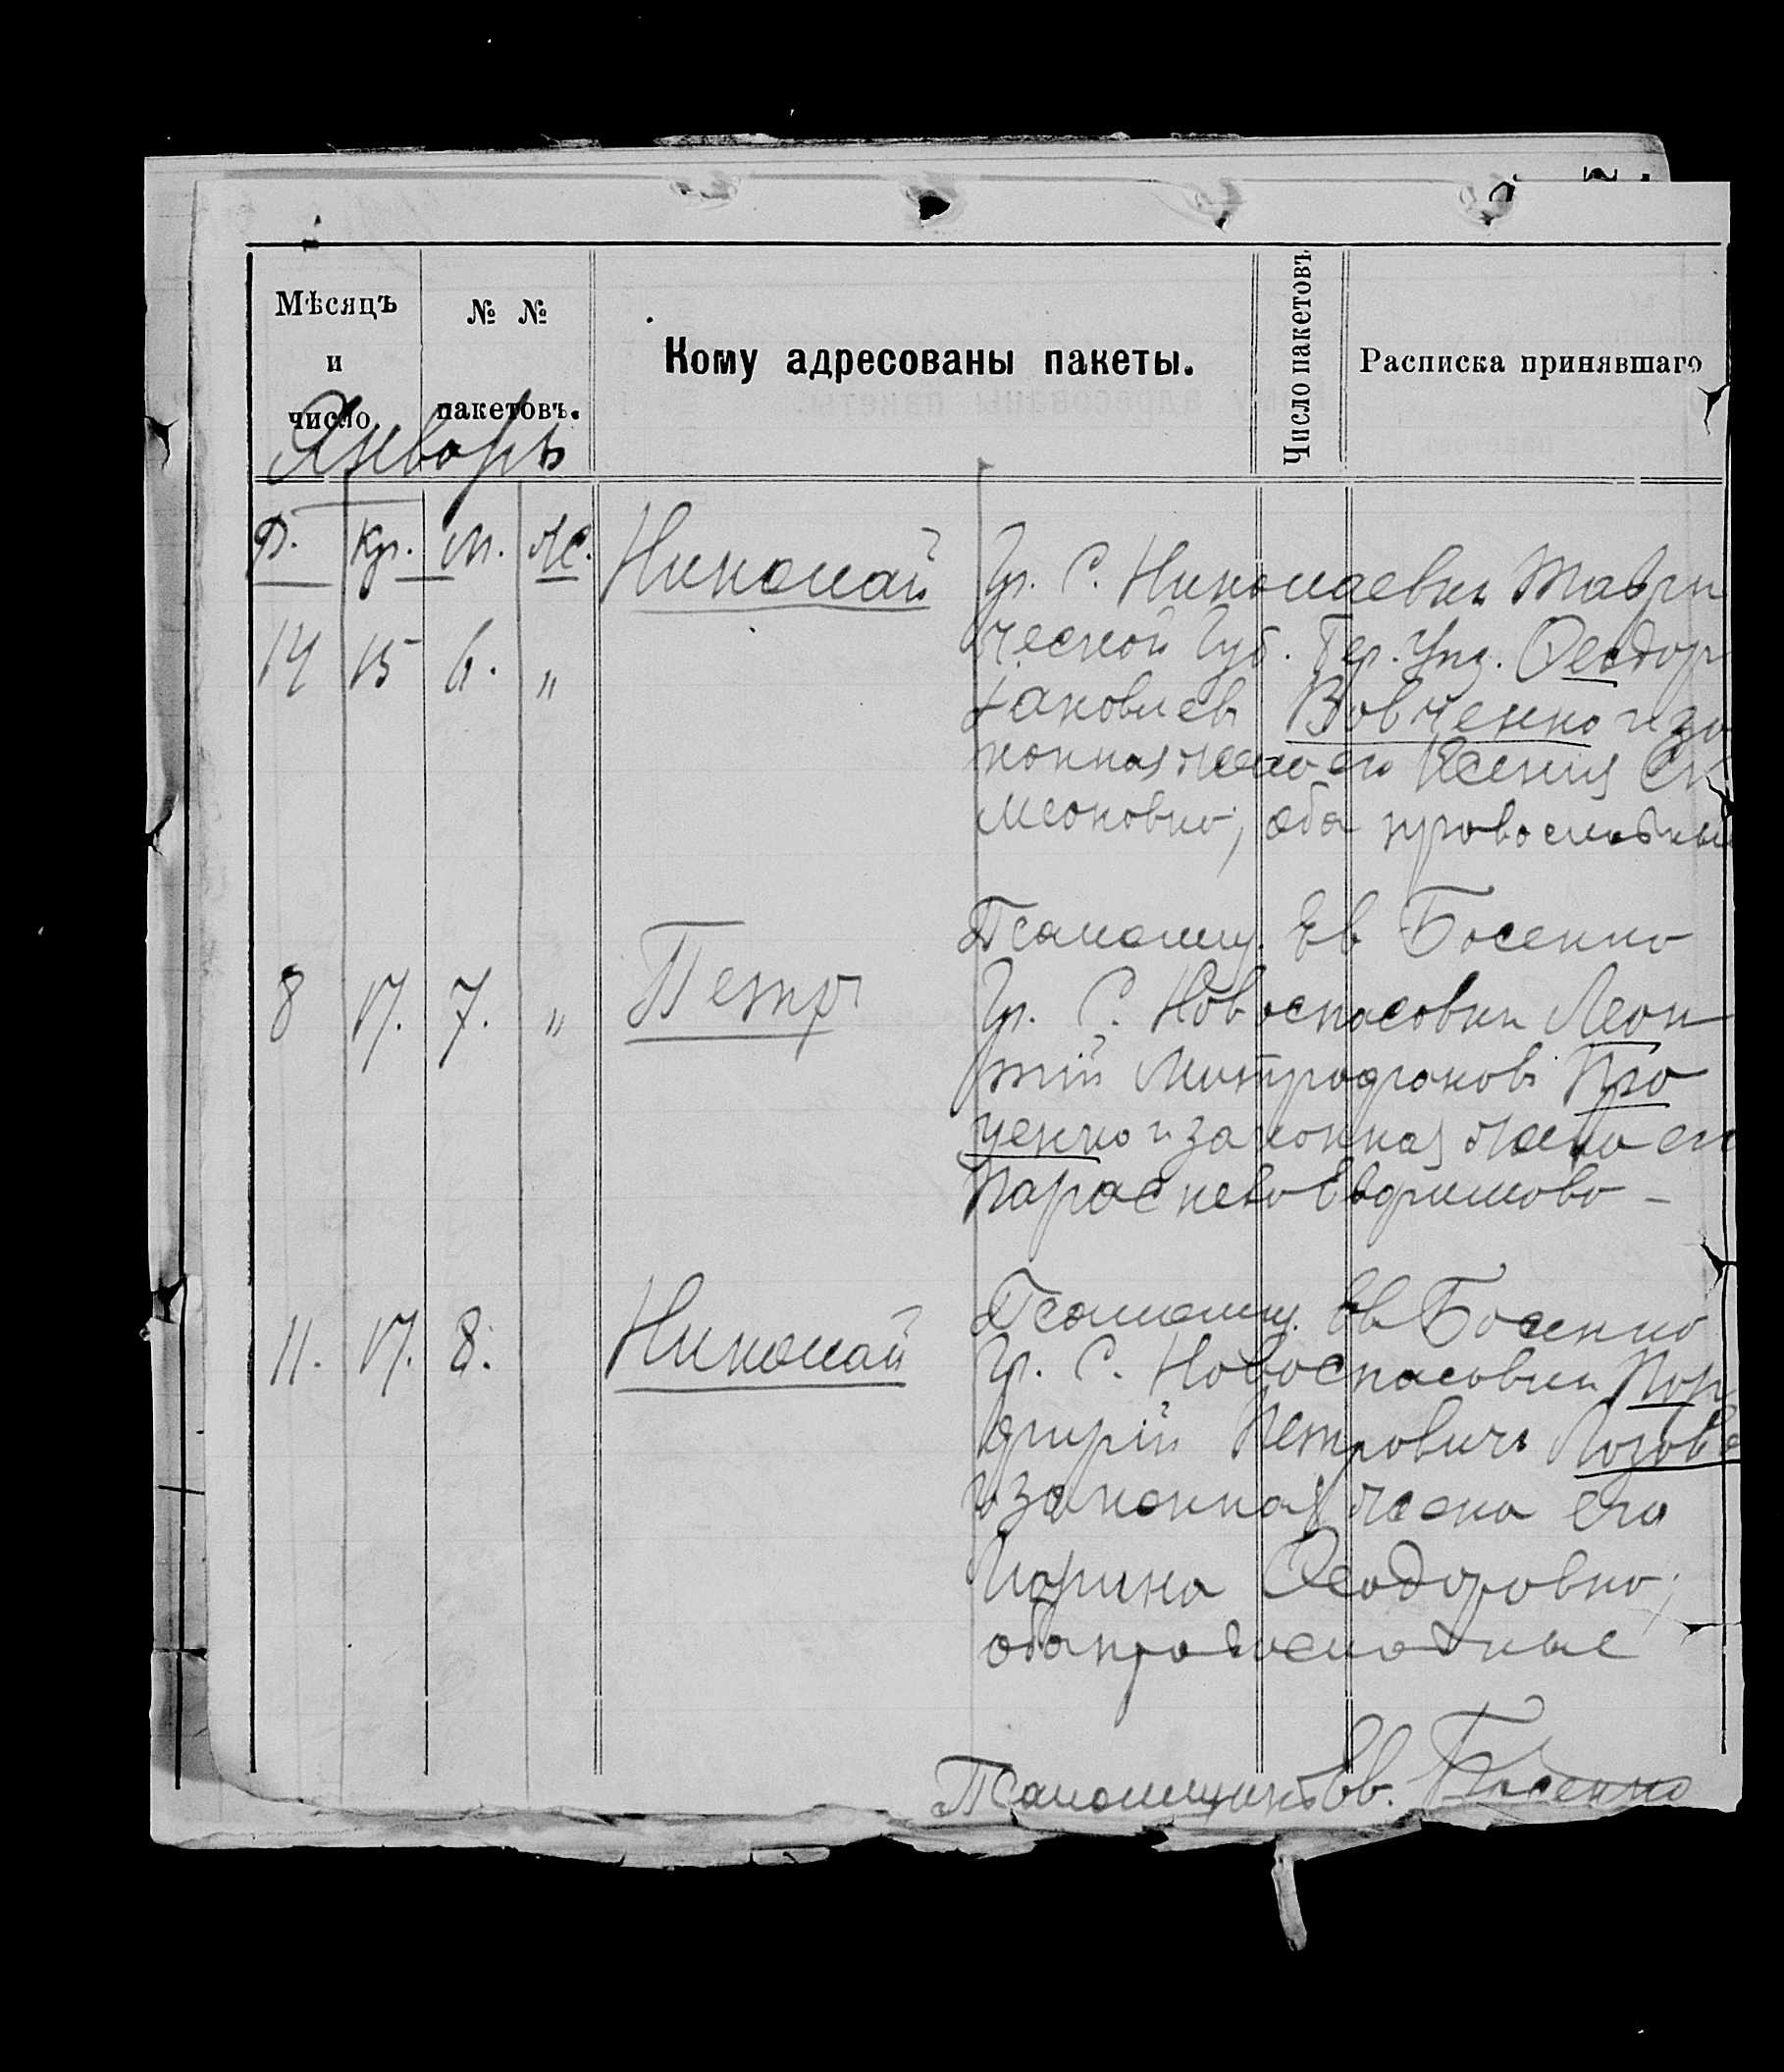 Мѣсяцъ и число
№ № пакетовъ.
Кому адресованы пакеты.
Число пакетовъ
Расписка принявшаго
Январь
Р. Кр. М. Ж.
Николай
Гр. С. Николаевки Таври
14 15 6. „
ческой Губ. Бер. Уѣз. Ѳеодор
Іаковлевъ Вовченко и за
конная жена его Ксенія Си
меоновна, оба православные
Псаломщ. Ев Босенко
8 17. 7. „
Петръ
Гр. С. Новоспасовки Леон
тій Митрофановъ Про
ценко и законная жена его
Параскева Евфимова –
Псаломщ. Ев Босенко
11. 17. 8.
Николай
Гр. С. Новоспасовки Пор
фирій Петровичъ Лозов
и законная жена его
Ирина Ѳеодоровна,
оба православные
Псаломщикъ Ев. Босенко